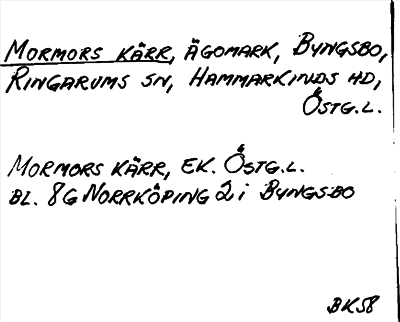 MORMORS KÄRR, ÄGOMARK, BYNGSBO,
RINGARUMS SN, HAMMARKINDS HD,
ÖSTG.L.
MORMORS KÄRR, EK. ÖSTG.L.
BL. 8G NORRKÖPING 2 i BYNGSBO
BK58